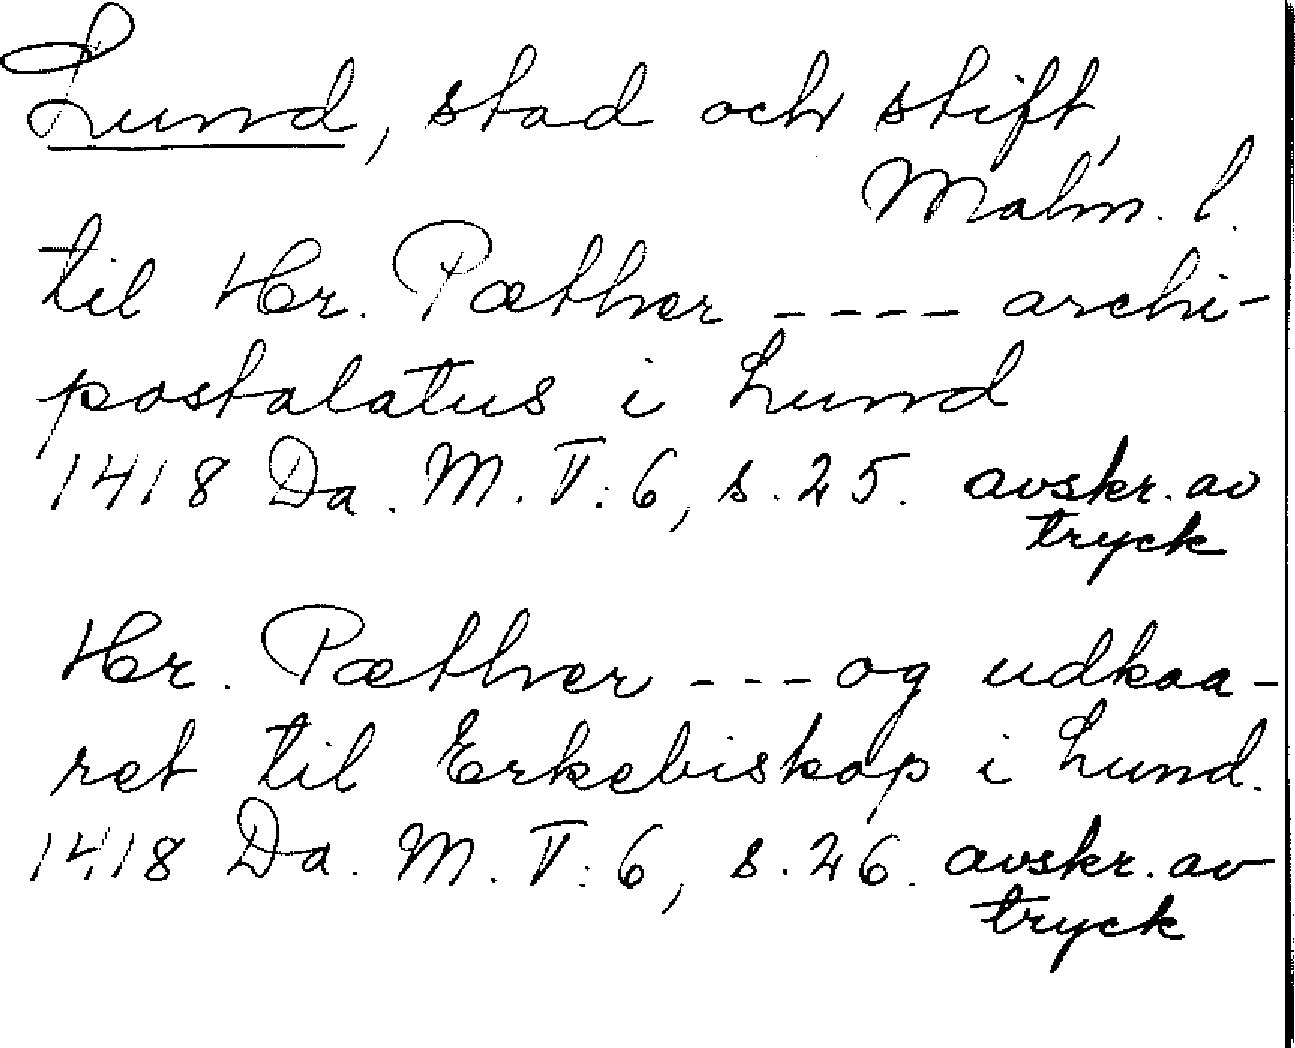 Lund, stad och stift,
Malm. l.
til Hr. Pæther ---- archi-
postalatus i Lund
1418 Da. M. V:6, s. 25. avskr. av
tryck
Hr. Pæther --- og udkaa-
ret til Erkebiskop i Lund.
1418 Da. M. V:6, s. 26. avskr. av
tryck